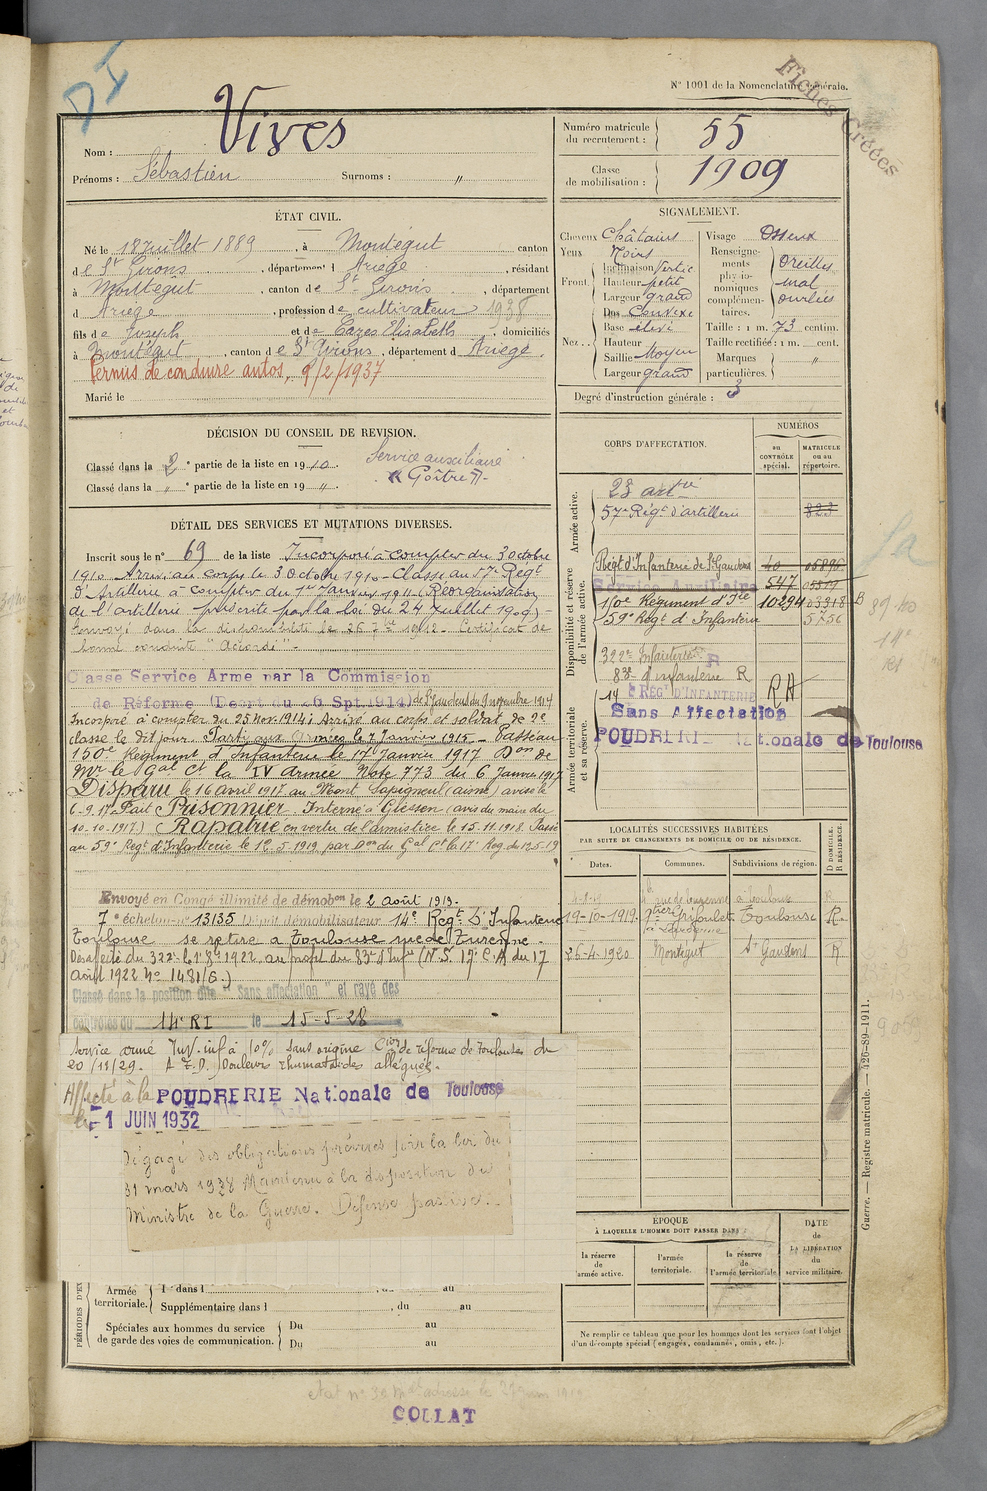 DI
Fiches Créées
N° 1001 de la Nomenclature générale.
Nom : Vives
Prénoms : Sébastien Surnoms : "
Numéro matricule du recrutement : 55
Classe de mobilisation : 1909
ÉTAT CIVIL.
Né le 18 Juillet 1889, à Montégut canton
de St Girons, département d Ariège, résidant
à Montégut, canton de St Girons, département
d Ariège, profession de cultivateur 1938
fils de Joseph et de Cazes Elisabeth, domiciliés
à Montégut, canton de St Girons, département d Ariège.
Permis de conduire autos, 9/2/1937
Marié le
SIGNALEMENT.
Cheveux Châtains
Yeux Noirs
Front. Inclinaison Vertic
Hauteur petit
Largeur grand
Nez. Dos Convexe
Base élevé
Hauteur
Saillie Moyen
Largeur grand
Visage Osseux
Renseignements physionomiques complémentaires. Oreilles mal ourlées
Taille : 1 m. 73 centim.
Taille rectifiée : 1 m. cent.
Marques particulières. "
Degré d'instruction générale : 3
DÉCISION DU CONSEIL DE REVISION.
Classé dans la 2e partie de la liste en 1910. Service auxiliaire
Classé dans la " e partie de la liste en 19 ". « Goître ».
DÉTAIL DES SERVICES ET MUTATIONS DIVERSES.
Inscrit sous le n° 69 de la liste Incorporé à compter du 3 octobre
1910 Arrivé au corps le 3 Octobre 1910 - Classé au 57e Régt
d'Artillerie à compter du 1er Janvier 1911 (Réorganisation
de l'artillerie prescrite par la loi du 24 Juillet 1909) -
Envoyé dans la disponibilité le 26 7bre 1912 - Certificat de
bonne conduite "Accordé" -
Classé Service Armé par la Commission
de Réforme (Décret du 26 Spt. 1914) de St Gaudens du 9 novembre 1914
Incorporé à compter du 25 Nov. 1914; Arrivé au corps et soldat de 2e
classe le dit jour. Parti aux Armées le 7 Janvier 1915 - Passé au
150e Régiment d'Infanterie le 17 Janvier 1917 Don de
Mr le Gal Ct la IV Armée Note 773 du 6 Janvier 1917
Disparu le 16 avril 1917 au Mont Sapigneul (aisne) avis le
6-9-17 Fait Prisonnier Interné à Giessen (avis du maire du
10-10-1917.) Rapatrié en vertu de l'armistice le 15.11.1918. Passé
au 59e Regt d'Infanterie le 12-5-1919 par Don du Gal Ct la 17e Reg. du 12-5-19
Envoyé en Congé illimité de démobon le 2 Août 1919.
7e échelon n° 13135 Dépôt démobilisateur 14e Regt d'Infanterie
Toulouse se retire à Toulouse rue de Turenne.
Désaffecté du 322e le 1er 8re 1922 au profit du 83e d'Infie (N.S. 17e C.A. du 17
août 1922 N° 1481/6.)
Classé dans la position dite "Sans affectation" et rayé des
contrôles du 14e RI le 15-5-28
Service armé Inv. inf à 10% sans origine Cion de réforme de Toulouse du
20/11/29. A.T.D. Douleurs rhumatoïdes alléguées.
Affecté à la POUDRERIE Nationale de Toulouse
le 1 JUIN 1932
Dégagé des obligations prévues par la loi du
31 mars 1928 Maintenu à la disposition du
Ministre de la Guerre. Défense passive.
CORPS D'AFFECTATION.
NUMÉROS
au CONTRÔLE spécial.
MATRICULE ou au répertoire.
Armée active.
23 artie
57e Régt d'artillerie 823
Disponibilité et réserve de l'armée active.
Régt d'Infanterie de St Gaudens 40
Service Auxiliaire 547
150e Régiment d'Ie 10294 03318 B
59e Régt d'Infanterie 5756
322e Infanterie R
83e d'infanterie R
Armée territoriale et sa réserve.
14e RÉGT D'INFANTERIE RA
Sans Affectation
POUDRERIE Nationale de Toulouse
LOCALITÉS SUCCESSIVES HABITÉES
PAR SUITE DE CHANGEMENTS DE DOMICILE OU DE RÉSIDENCE.
Dates. Communes. Subdivisions de région. D DOMICILE. R RÉSIDENCE.
rue de Turenne à Toulouse R
19-10-1919 Toulouse R
26-4-1920 Montégut St Gaudens R
ÉPOQUE
À LAQUELLE L'HOMME DOIT PASSER DANS
la réserve de l'armée active.
l'armée territoriale.
la réserve de l'armée territoriale
DATE de LA LIBÉRATION du service militaire.
Armée territoriale. 1e dans l au
Supplémentaire dans l , du au
Spéciales aux hommes du service de garde des voies de communication. Du au
Du au
Ne remplir ce tableau que pour les hommes dont les services font l'objet
d'un décompte spécial (engagés, condamnés, omis, etc.).
Guerre. — Registre matricule. — 426-89-1911.
COLLAT